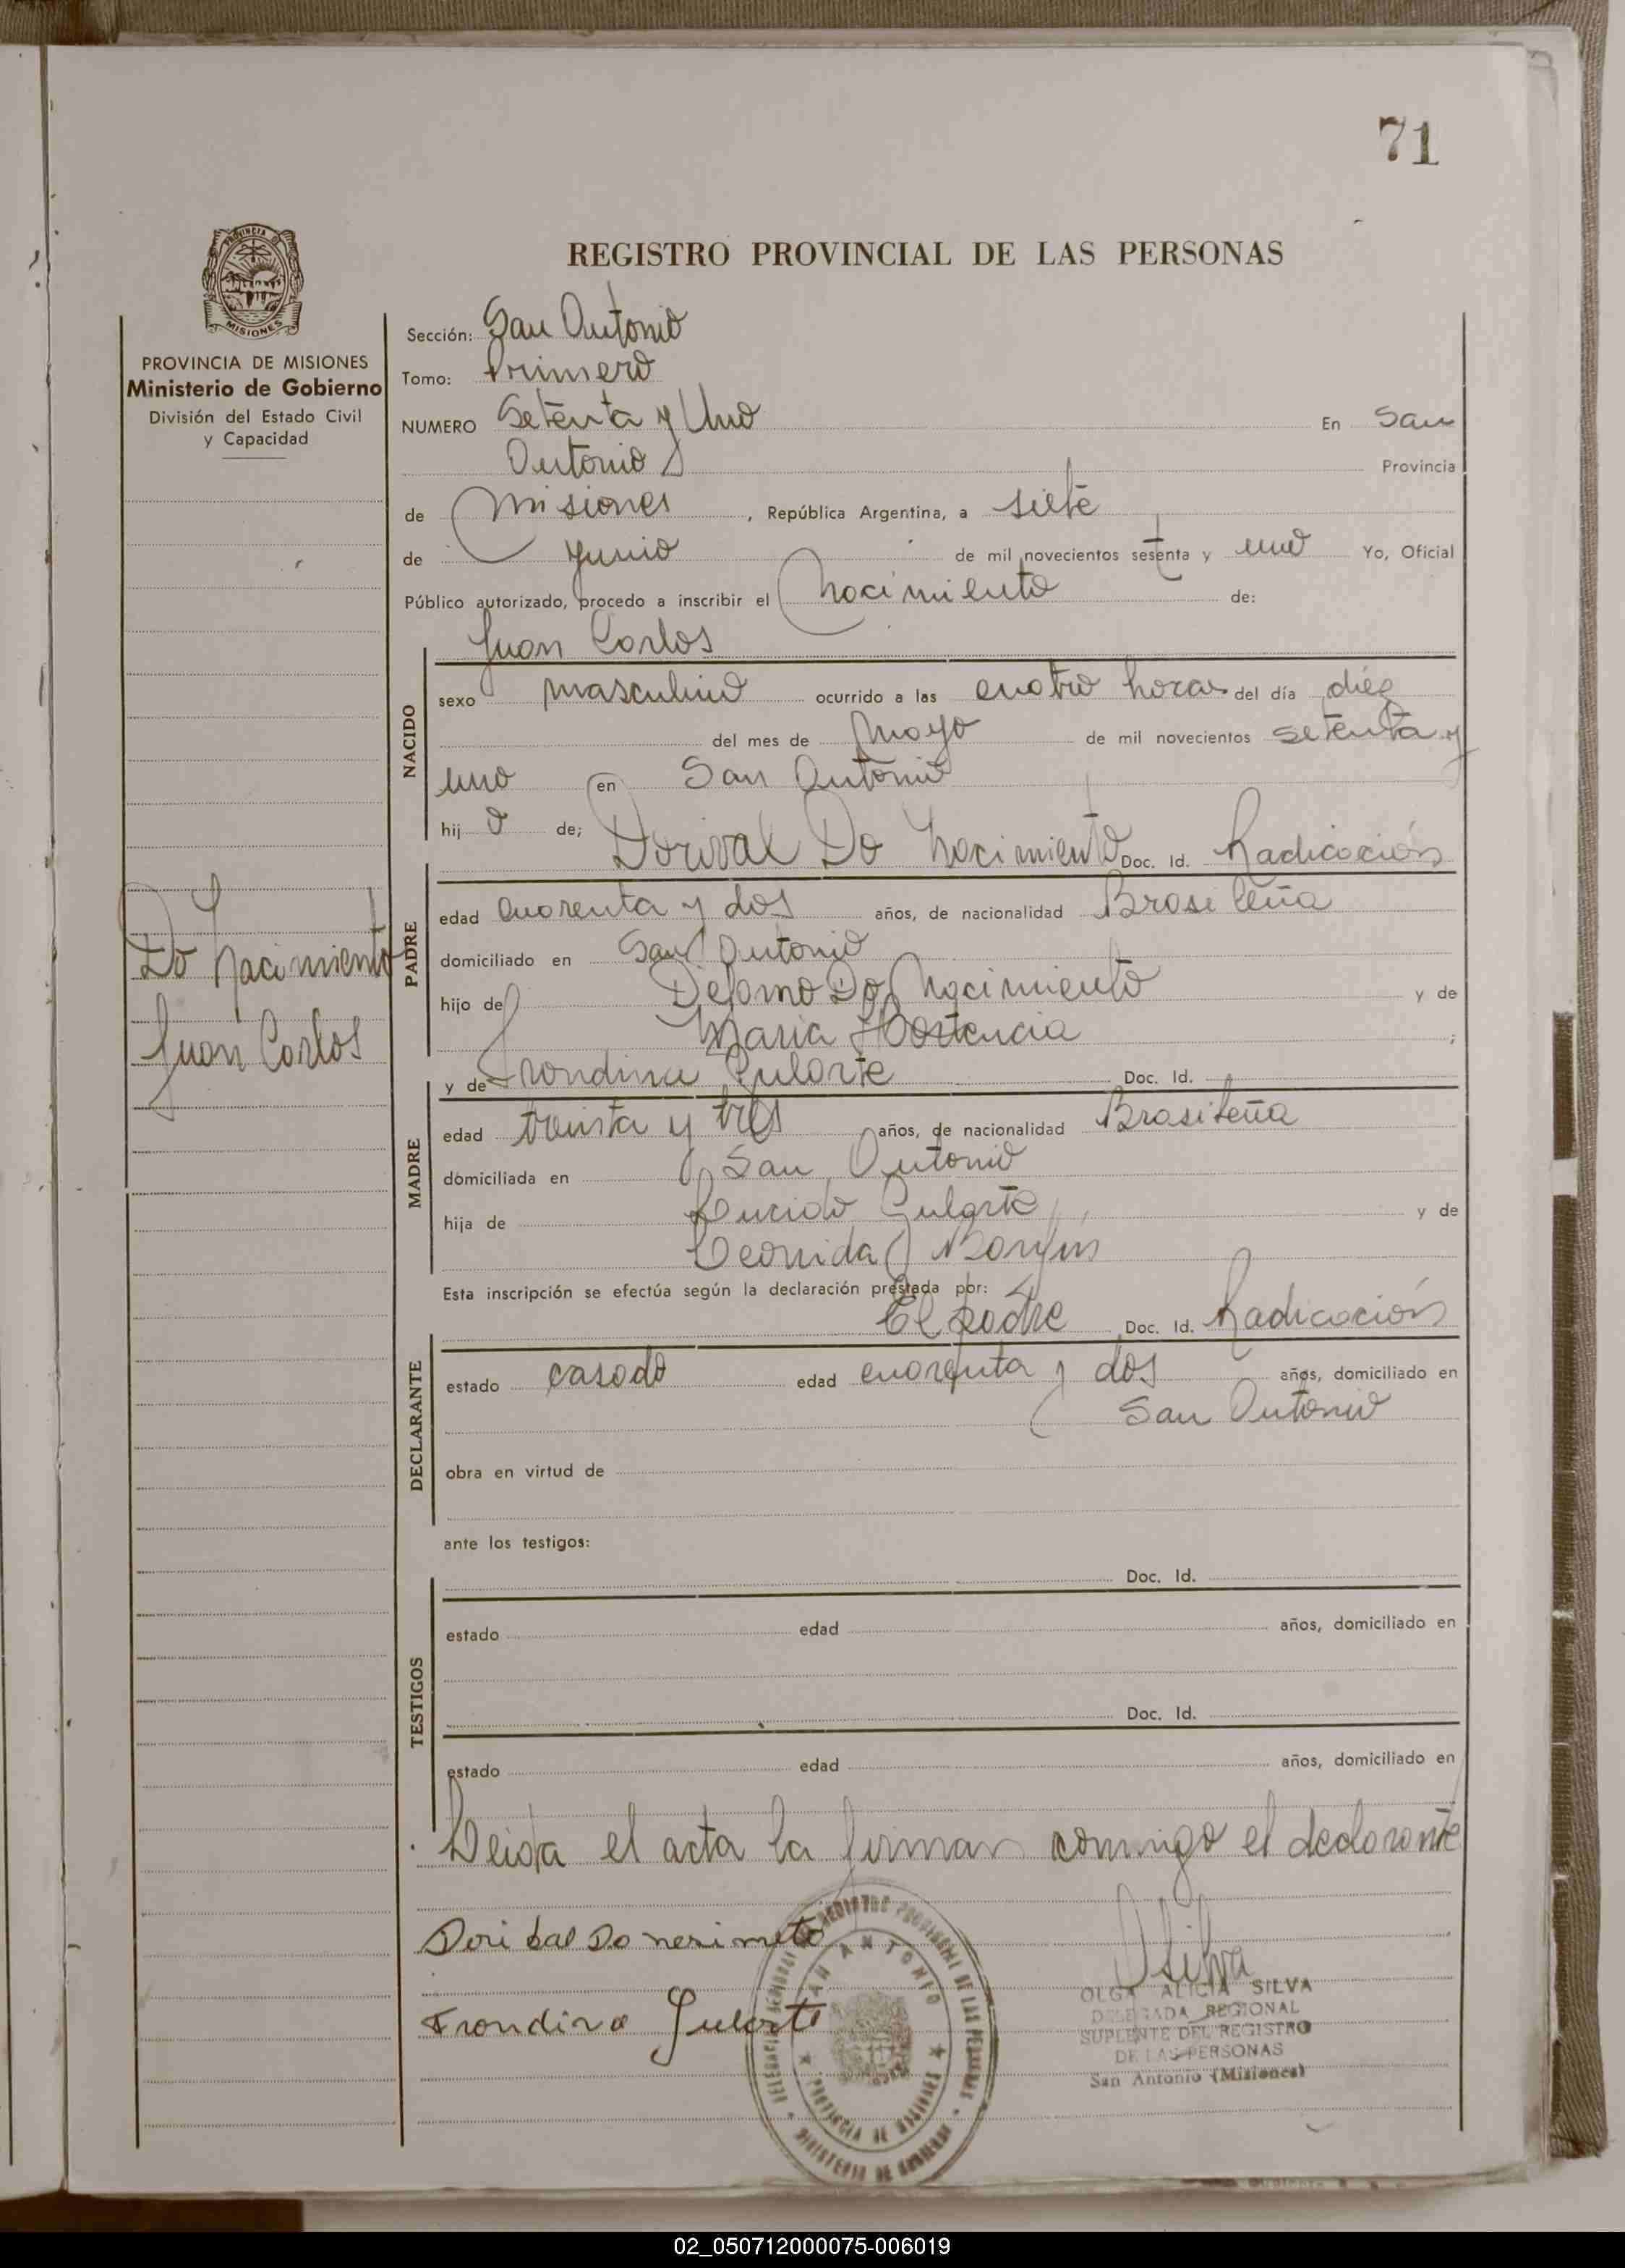 71
PROVINCIA DE MISIONES
MISIONES
PROVINCIA DE MISIONES
Ministerio de Gobierno
División del Estado Civil
y Capacidad
Do Nacimiento
Juan Carlos
REGISTRO PROVINCIAL DE LAS PERSONAS
Sección: San Antonio
Tomo: Primero
NUMERO Setenta y Uno En San
Antonio Provincia
de Misiones, República Argentina, a siete
de Junio de mil novecientos setenta y uno Yo, Oficial
Público autorizado, procedo a inscribir el Nacimiento de:
Juan Carlos
NACIDO
sexo masculino ocurrido a las cuatro horas del día diez
del mes de Mayo de mil novecientos setenta y
uno en San Antonio
hij o de; Dorival Do Nacimiento Doc. Id. Radicación
PADRE
edad cuarenta y dos años, de nacionalidad Brasileña
domiciliado en San Antonio
hijo de Do Nacimiento y de
Maria Hortencia ;
y de Frondina Gularte Doc. Id.
MADRE
edad treinta y tres años, de nacionalidad Brasileña
domiciliada en San Antonio
hija de Lucido Gularte y de
Leonida
Esta inscripción se efectúa según la declaración prestada por:
El padre Doc. Id. Radicación
DECLARANTE
estado casado edad cuarenta y dos años, domiciliado en
San Antonio
obra en virtud de
ante los testigos:
Doc. Id.
TESTIGOS
estado edad años, domiciliado en
Doc. Id.
estado edad años, domiciliado en
Leida el acta la firman conmigo el declarante
Doribal Do nesimeto
Frondina Gularte
REGISTRO PROVINCIAL DE LAS PERSONAS
SAN ANTONIO
PROVINCIA DE MISIONES
MINISTERIO DE GOBIERNO
OSilva
OLGA ALICIA SILVA
DELEGADA REGIONAL
SUPLENTE DEL REGISTRO
DE LAS PERSONAS
San Antonio (Misiones)
02_050712000075-006019